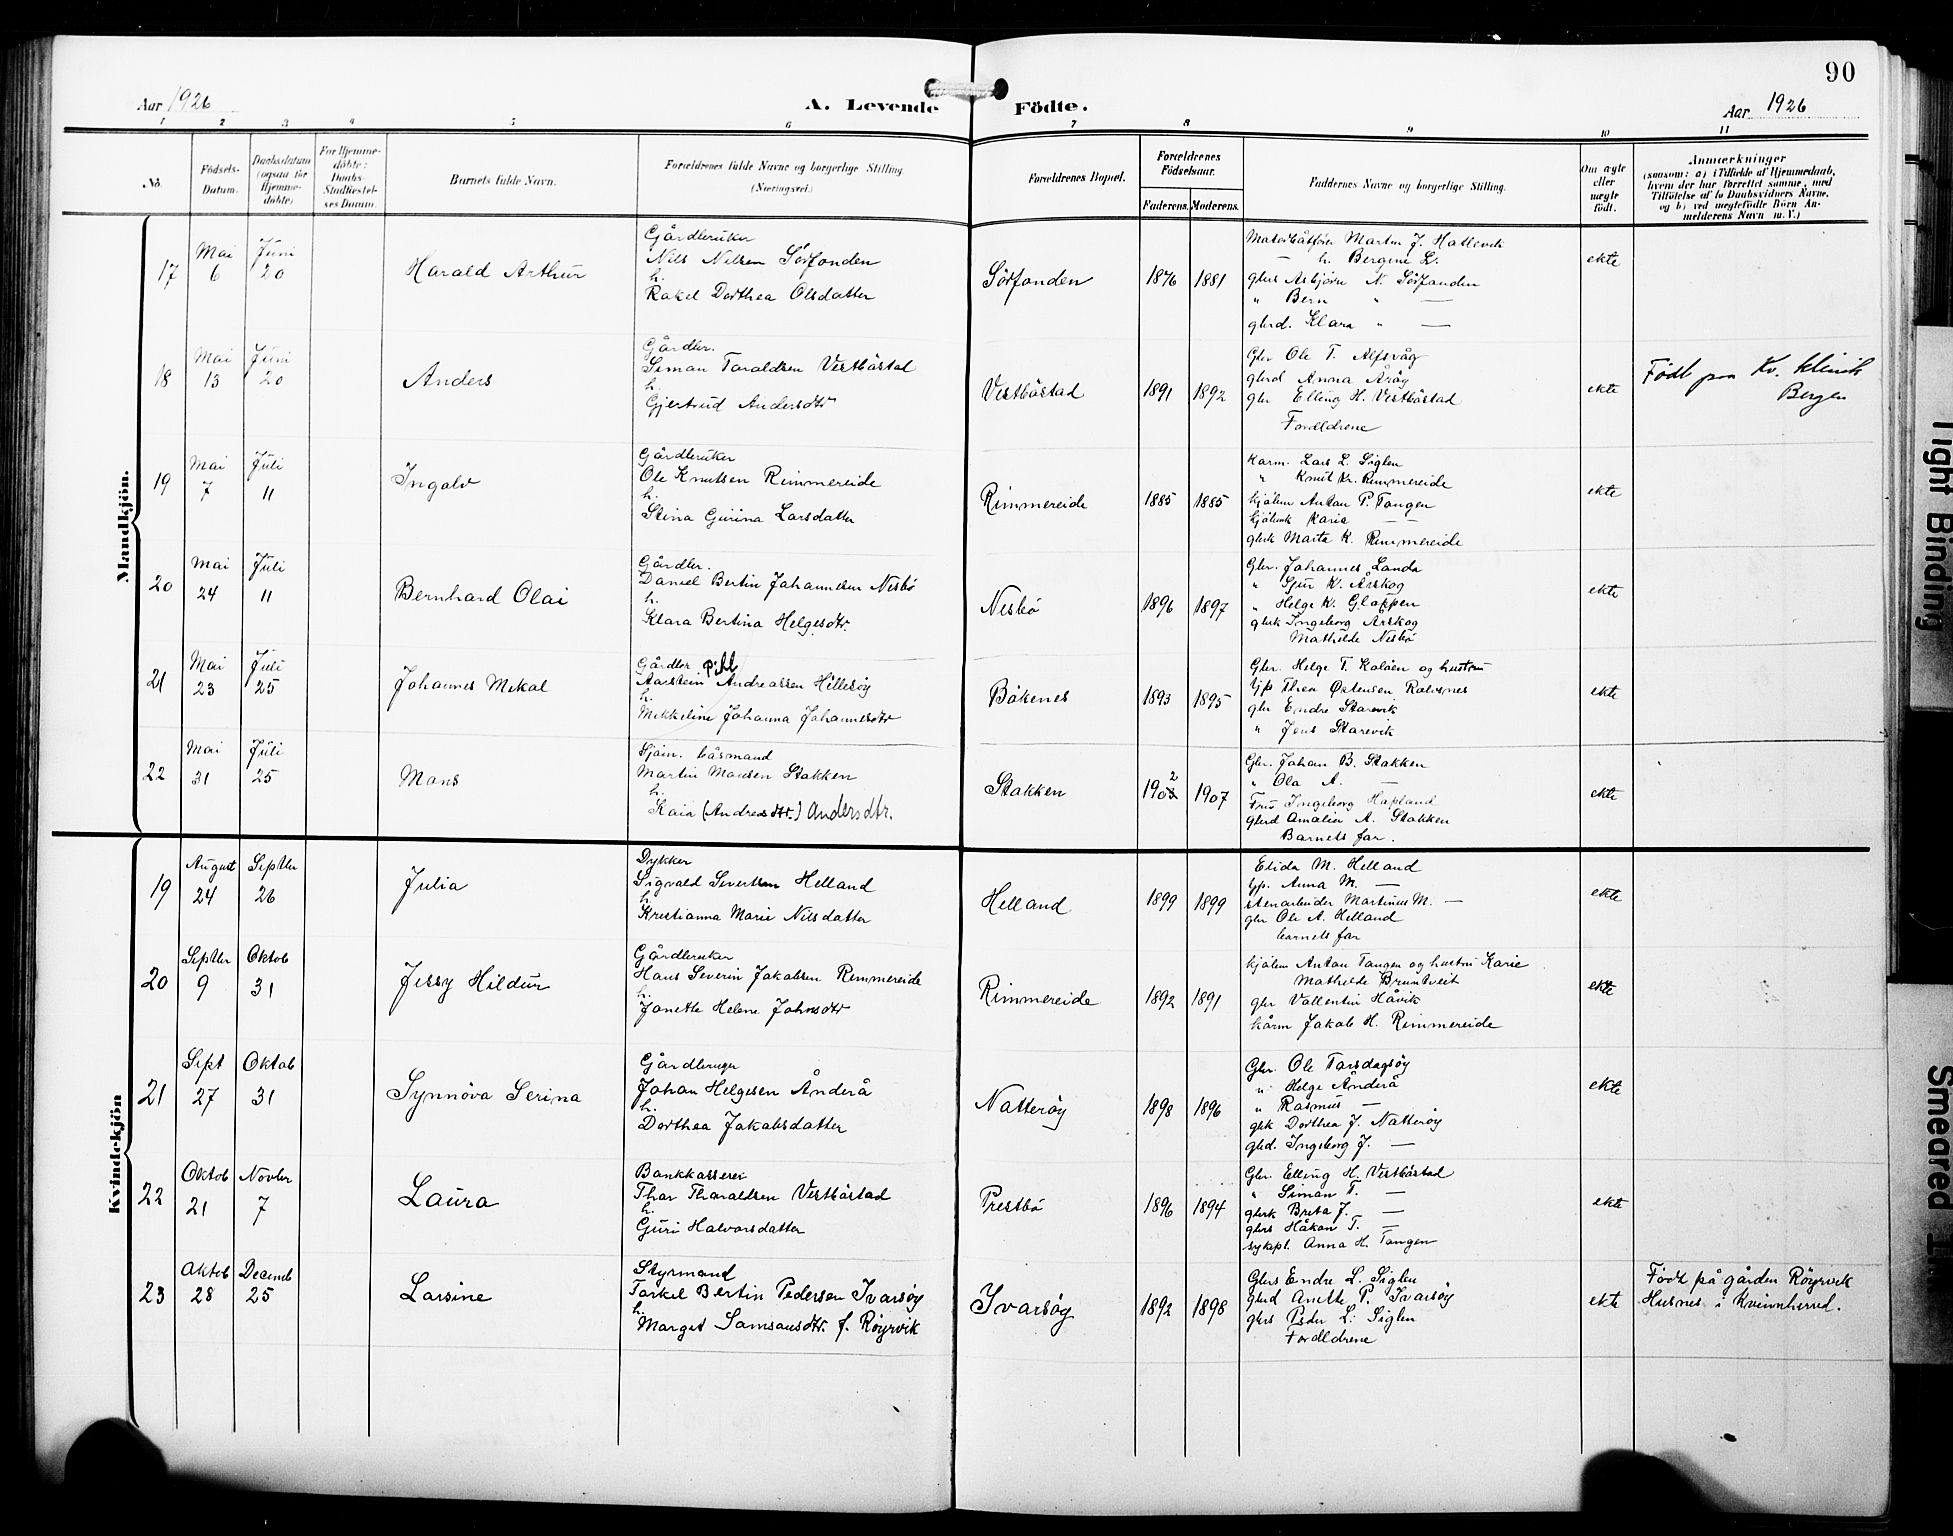 90
Aar 1926
A. Levende Födte.
Aar 1926
1 2 3 4 5 6 7 8 9 10 11
No.
Födsels-
Datum.
Daabsdatum
(ogsaa for
Hjemme-
döbte)
For Hjemme-
döbte:
Daabs-
Stadfæstel-
ses Datum.
Barnets fulde Navn.
Forældrenes fulde Navne og borgerlige Stilling.
(Næringsvei.)
Forældrenes Bopæl.
Forældrenes
Födselsaar.
Faderens. Moderens.
Faddernes Navne og borgerlige Stilling.
Om ægte
eller
uægte
födt.
Anmærkninger
(saasom: a) i Tilfælde af Hjemmedaab,
hvem der har forrettet samme, med
Tilföielse af to Daabsvidners Navne.
og b) ved uægtefödte Börn An-
melderens Navn m. V.)
Mandkjön.
17
Mai
6
Juni
20
Harald Arthur
Gårdbruker
Nils Nilsen Sörfonden
h.
Rakel Dorthea Olsdatter
Sörfonden
1876 1881
Motorbåtförer Martin J. Hatlevik
— h. Bergine L.
gbrs Asbjörn N. Sörfonden
" Bern " —
gbrd. Klara " —
ekte
18
Mai
13
Juni
20
Anders
Gårdbr.
Simon Taraldsen Vestböstad
h.
Gjertrud Andersdtr
Vestböstad
1891 1892
Gbr Ole T. Alfsvåg
gbrd Anna Åröy
gbr Elling H. Vestböstad
Foreldrene
ekte
Födt paa Kv. klinik
Bergen
19
Mai
7
Juli
11
Ingolv
Gårdbruker
Ole Knutsen Rimmereide
h.
Stina Gurina Larsdatter
Rimmereide
1885 1885
Karm. Lars L. Siglen
" Knut Kr. Rimmereide
kjölem Anton P. Tangen
kjölemk Karie — —
gbrk Marta K. Rimmereide
ekte
20
Mai
24
Juli
11
Bernhard Olai
Gårdbr.
Daniel Bertin Johannesen Nesbö
h.
Klara Bertina Helgesdtr.
Nesbö
1896 1897
Gbr. Johannes Landa
" Sjur K. Årskog
" Helge K. Gloppen
gbrk Ingeborg Årskog
Mathilde Nesbö
ekte
21
Mai
23
Juli
25
Johannes Mikal
Gårdbr
Aarstein Andreassen Hillesöy
h.
Mikkeline Johanna Johannesdtr
Bökenes
1893 1895
Gbr. Helge T. Kalöen og hustru
tjp Thea Östensen Rolvsnes
gbr Endre Starevik
" Jens Starevik
ekte
22
Mai
31
Juli
25
Mons
Sjöm. båsmand
Martin Monsen Stokken
h.
Kaia (Andreasdtr.) Andersdtr.
Stokken
1902 1907
Gbr. Johan B. Stokken
" Ola A. —
Fru Ingeborg Hapland
gbrd Amalia A. Stokken
Barnets far.
ekte
Kvindekjön
19
August
24
Septbr
26
Julia
Dykker
Sigvald Sivertsen Helland
h.
Kristianna Marie Nilsdatter
Helland
1899 1899
Elida M. Helland
tjp. Anna M. —
stenarbeider Martinus M. —
gbr Ole A. Helland
barnets far
ekte
20
Septbr
9
Oktob
31
Jessy Hildur
Gårdbruker
Hans Severin Jakobsen Rimmereide
h.
Janette Helene Johnsdtr
Rimmereide
1892 1891
kjölem Anton Tangen og hustru Karie
Mathilde Bruntveit
gbr Vallentin Håvik
kårm Jakob H. Rimmereide
ekte
21
Sept
27
Oktob
31
Synnöva Serina
Gårdbruger
Johan Helgesen Ånderå
h.
Dorthea Jakobsdatter
Natteröy
1898 1896
Gbr. Ole Torsdagsöy
" Helge Ånderå
" Rasmus —
gbk Dorthea J. Natteröy
gbd. Ingeborg J. —
ekte
22
Oktob
21
Novbr
7
Laura
Bankkasserer
Thor Tharaldsen Vestböstad
h.
Guri Halvorsdatter
Prestbö
1896 1894
Gbr. Elling H. Vestböstad
" Simon T. —
gbrk Brita J. —
gbrs Håkon T. —
sykepl. Anna H. Tangen
ekte
23
Oktob
28
Decemb
25
Larsine
Styrmand
Torkel Bertin Pedersen Ivarsöy
h.
Margit Samsonsdtr. f. Röyrvik
Ivarsöy
1892 1898
Gbrs Endre L. Siglen
gbrd Anette P. Ivarsöy
gbrs Peder L. Siglen
Foreldrene
ekte
Födt på gården Röyrvik
Husnes i Kvinnherred.
Tight Binding
Smeared